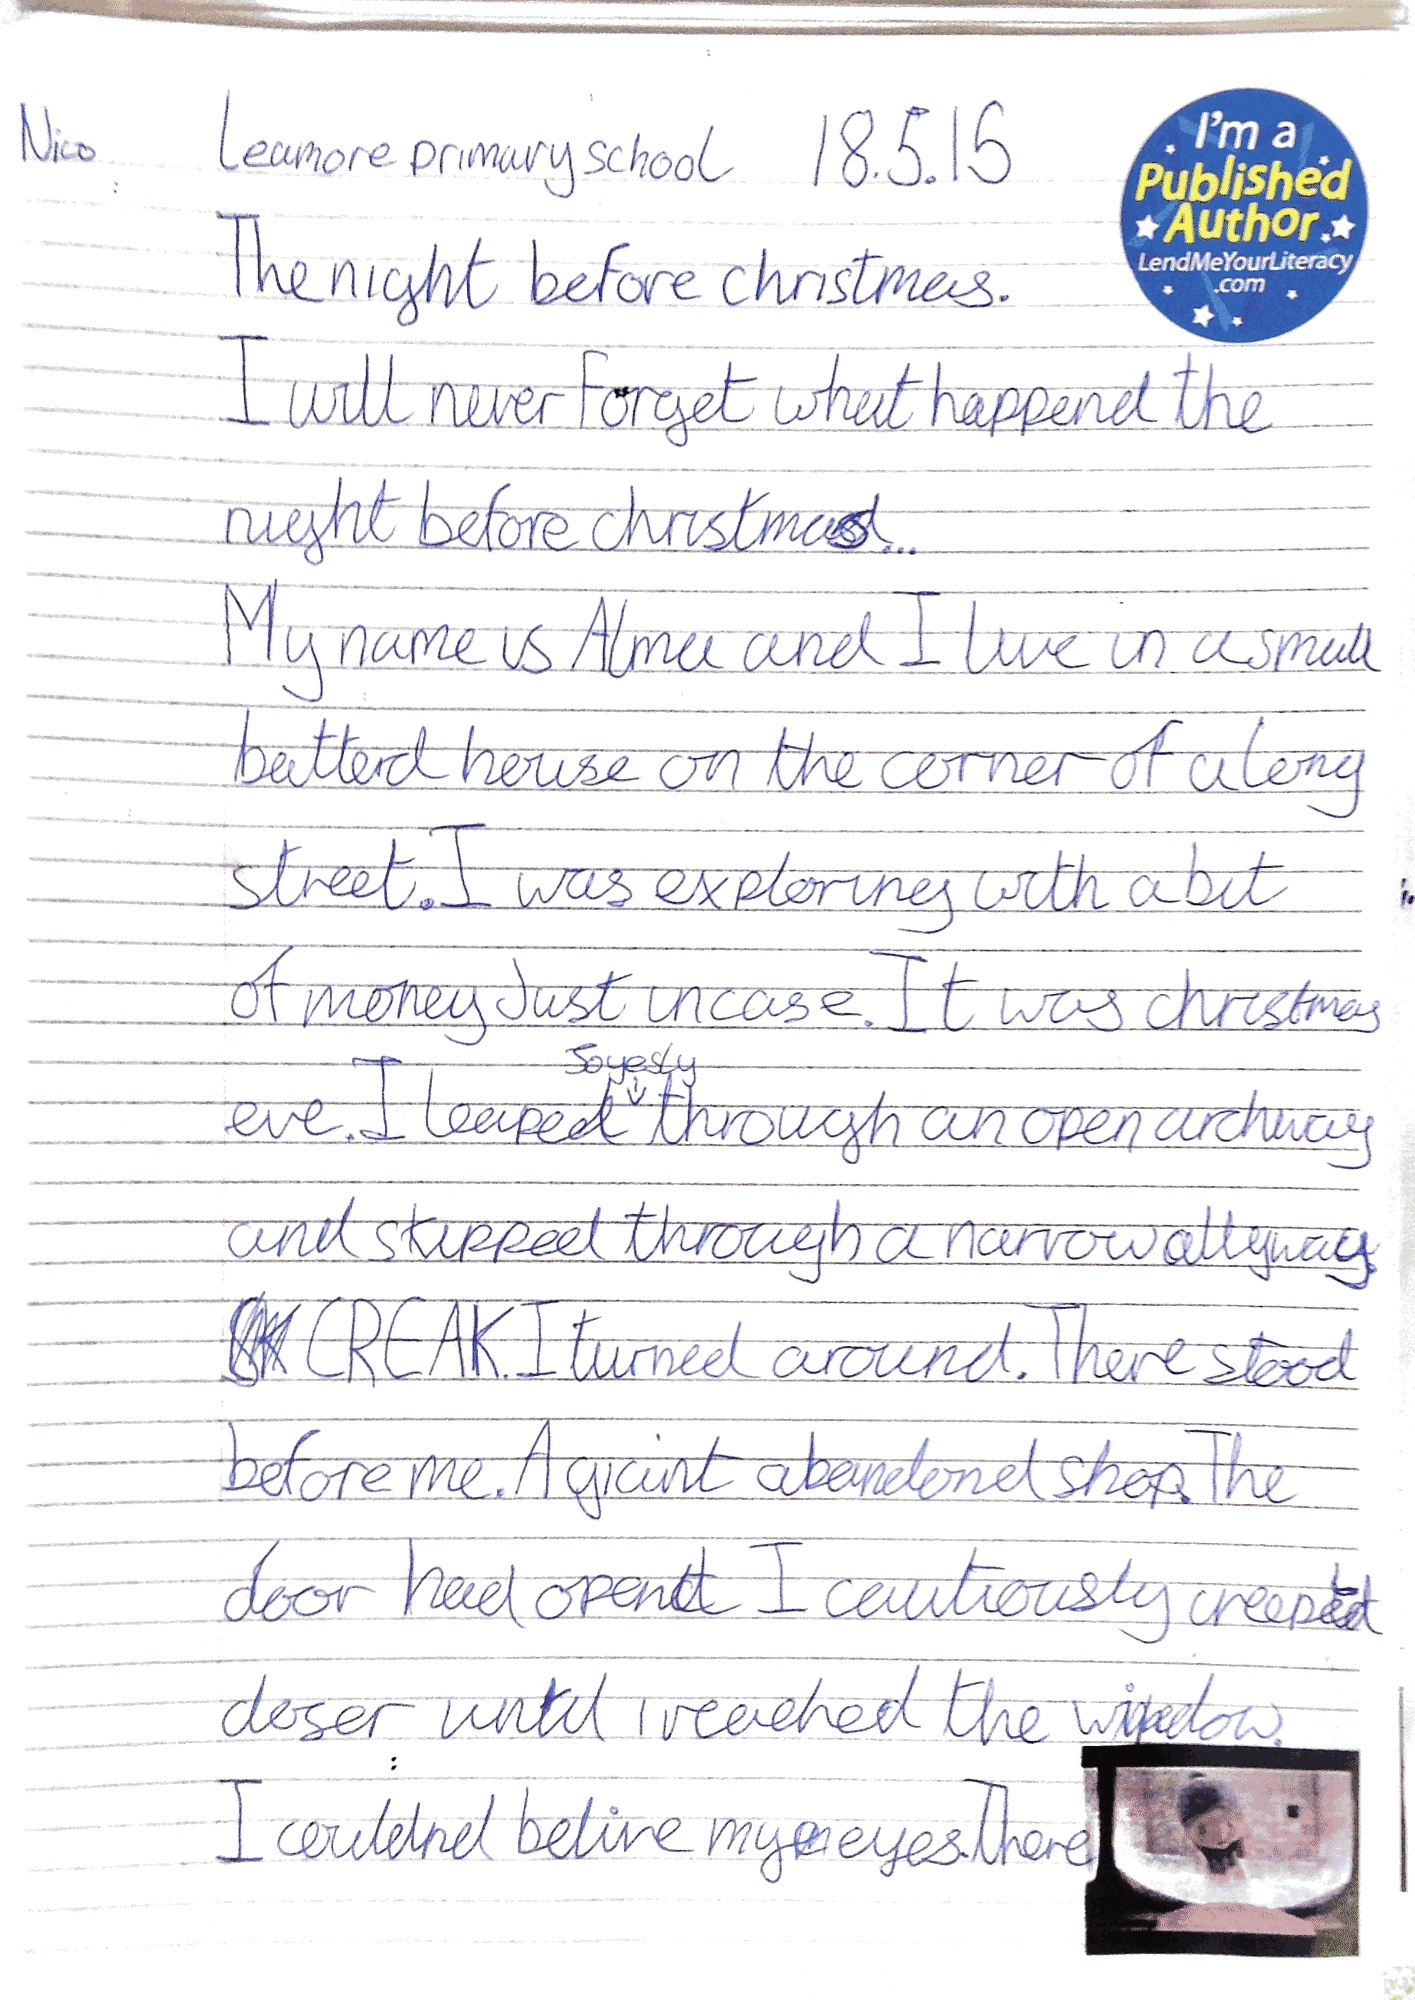 Nico Leamore primary school 18.5.15
I'm a
Published
Author
LendMeYourLiteracy
.com
The night before christmas.
I will never forget what happend the
night before christmas...
My name is Alma and I live in a small
batterd house on the corner of a long
street. I was exploring with a bit
of money Just incase. It was christmas
Joyesly
eve. I leaped through an open archway
and skipped through a narrow alleyway.
CREAK. I turned around. There stood
before me. A giant abandond shop. The
door had opend I cautiously creeped
closer until i reached the window.
I couldnd belive my eyes. There